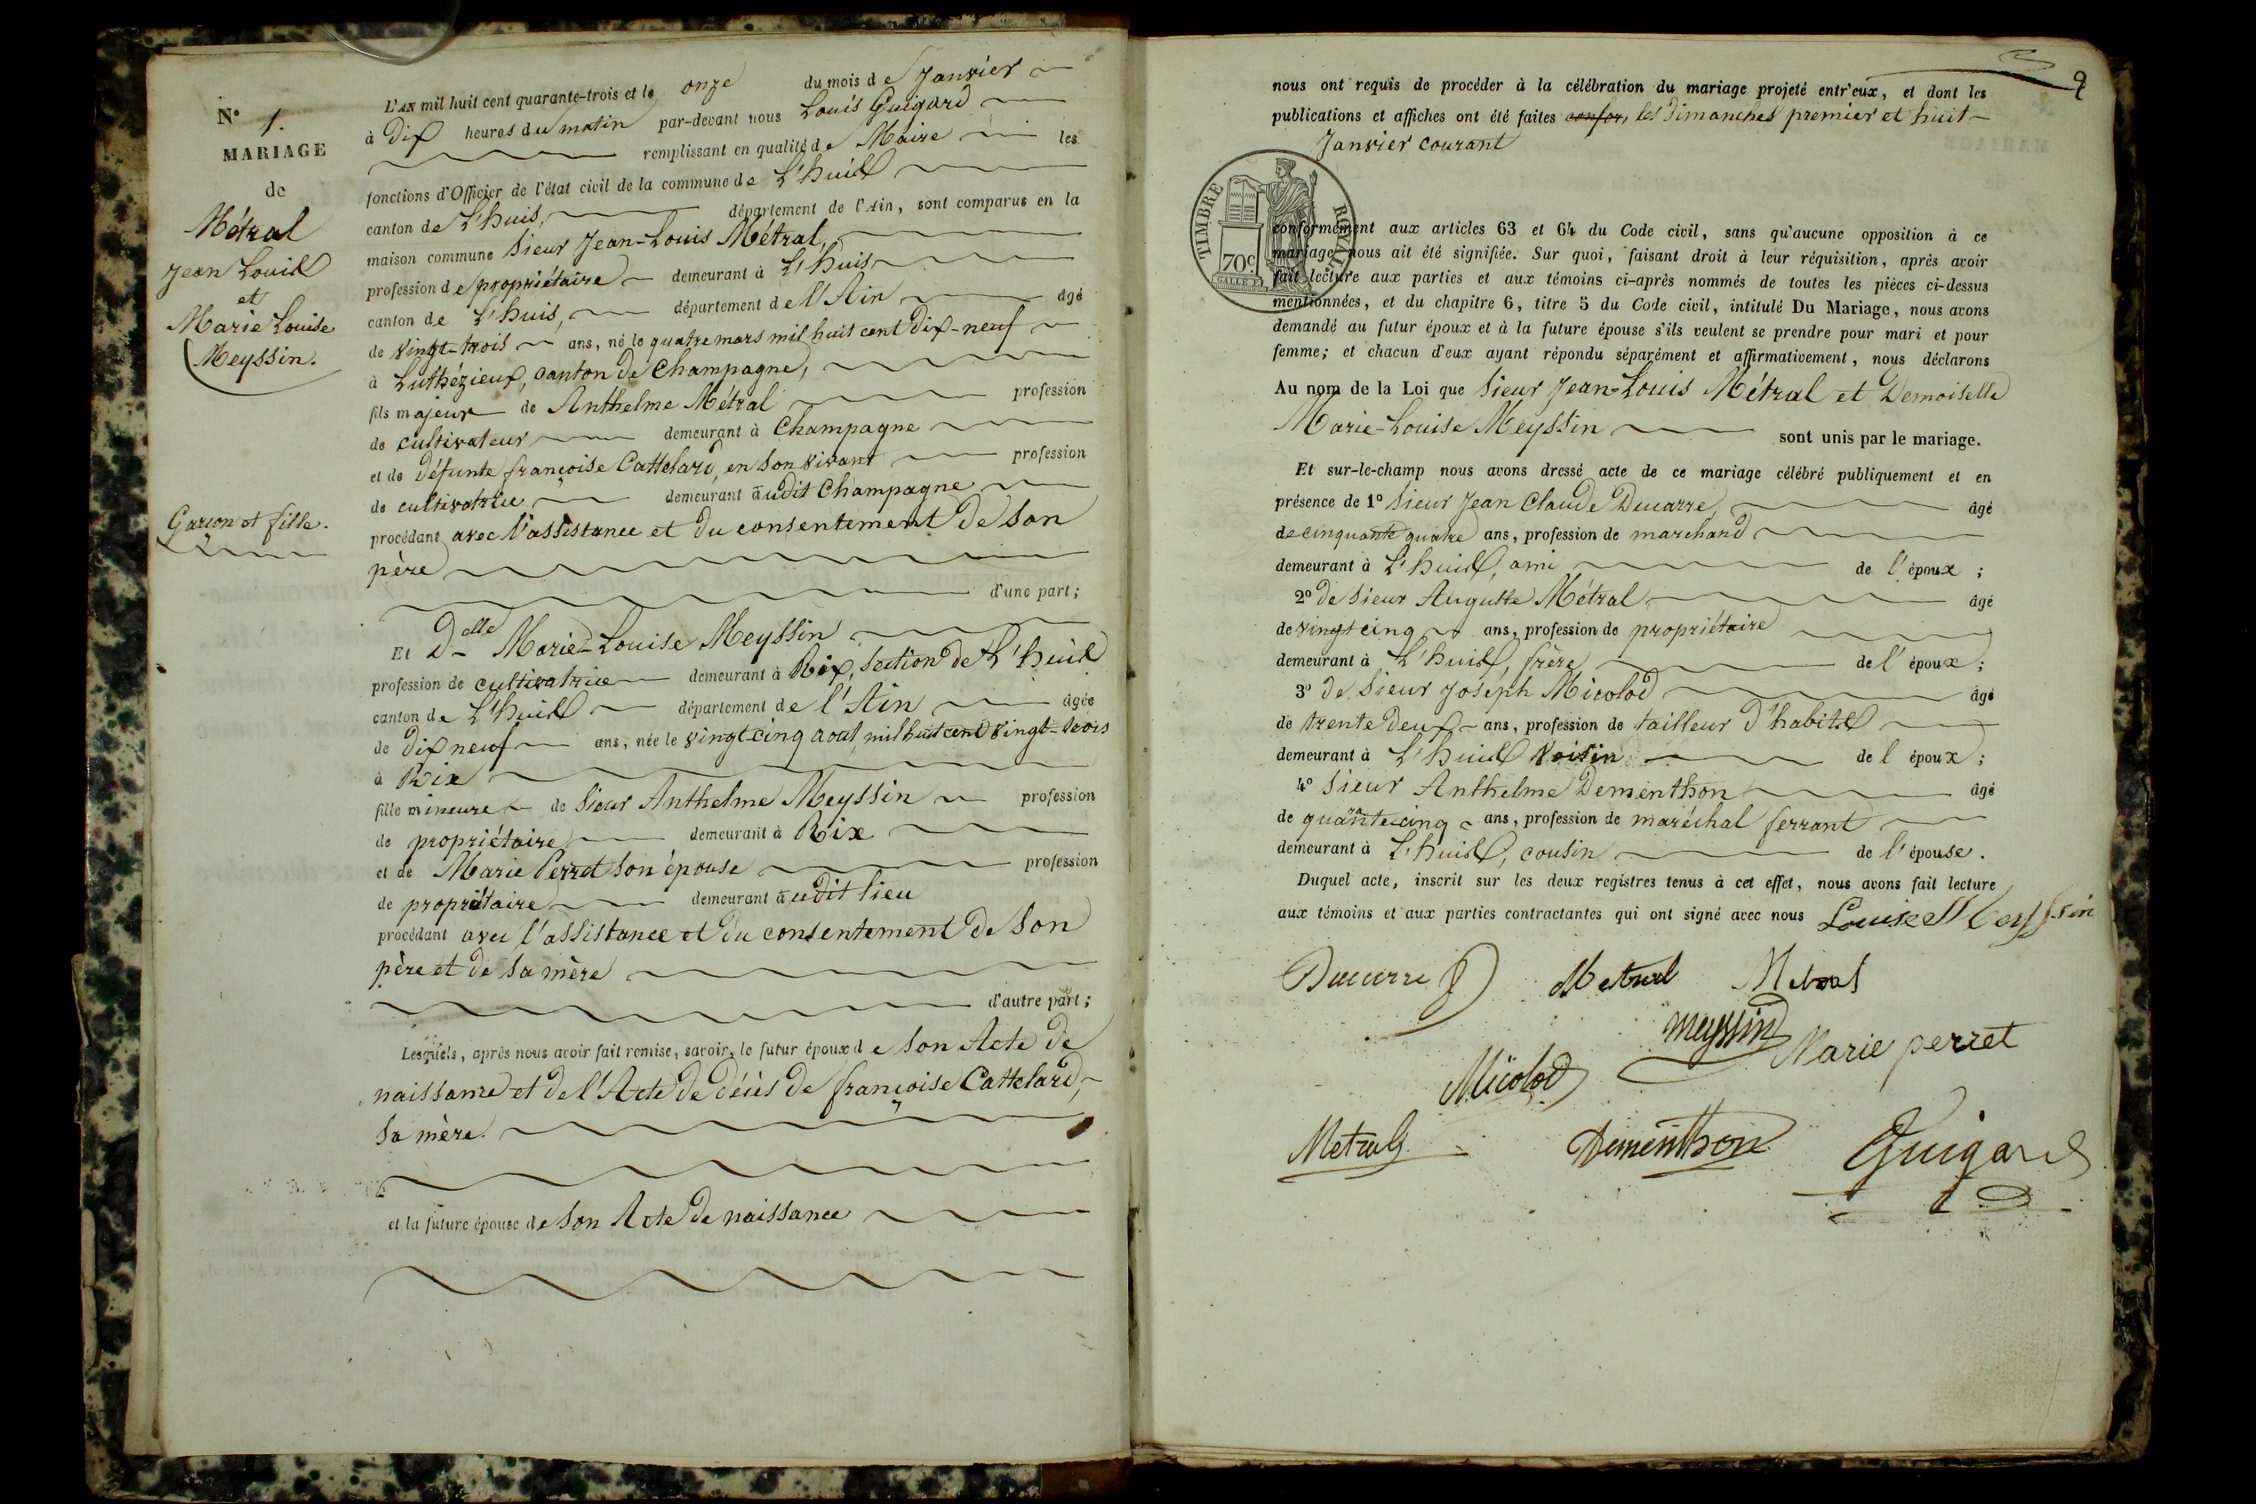 N° 1.
MARIAGE
de
Métral
Jean Louis
et
Marie Louise
Meyssin.
Garçon et fille.
L'an mil huit cent quarante-trois et le onze du mois de Janvier
à Dix heures du matin par-devant nous Louis Guigard
remplissant en qualité de Maire les
fonctions d'Officier de l'état civil de la commune de L'huis
canton de L'huis, département de l'Ain, sont comparus en la
maison commune Sieur Jean-Louis Métral,
profession de propriétaire demeurant à L'huis
canton de L'huis, département de l'Ain âgé
de vingt-trois ans, né le quatre mars mil huit cent Dix-neuf
à Luthézieux, canton de Champagne,
fils majeur de Anthelme Métral profession
de cultivateur demeurant à Champagne
et de Défunte françoise Cattelard, en son vivant profession
de cultivatrice demeurant audit Champagne
procédant avec l'assistance et du consentement de son
père
d'une part;
Et Dlle Marie-Louise Meyssin
profession de cultivatrice demeurant à Rix, section de L'huis
canton de L'huis département de l'Ain âgée
de dix neuf ans, née le vingt cinq aout mil huit cent vingt-trois
à Rix
fille mineure de Sieur Anthelme Meyssin profession
de propriétaire demeurant à Rix
et de Marie Perret son épouse profession
de propriétaire demeurant audit lieu
procédant avec l'assistance et du consentement de son
père et de sa mère
d'autre part;
Lesquels, après nous avoir fait remise, savoir, le futur époux de son Acte de
naissance et de l'Acte de décès de françoise Cattelard,
sa mère.
et la future épouse de son Acte de naissance
9
nous ont requis de procéder à la célébration du mariage projeté entr'eux, et dont les
publications et affiches ont été faites confor, les Dimanches premier et huit
Janvier courant
TIMBRE ROYAL
70c
conformément aux articles 63 et 64 du Code civil, sans qu'aucune opposition à ce
mariage nous ait été signifiée. Sur quoi, faisant droit à leur réquisition, après avoir
fait lecture aux parties et aux témoins ci-après nommés de toutes les pièces ci-dessus
mentionnées, et du chapitre 6, titre 5 du Code civil, intitulé Du Mariage, nous avons
demandé au futur époux et à la future épouse s'ils veulent se prendre pour mari et pour
femme; et chacun d'eux ayant répondu séparément et affirmativement, nous déclarons
Au nom de la Loi que Sieur Jean-Louis Métral et Demoiselle
Marie-Louise Meyssin sont unis par le mariage.
Et sur-le-champ nous avons dressé acte de ce mariage célébré publiquement et en
présence de 1° Sieur Jean Claude Ducarre, âgé
de cinquante quatre ans, profession de marchand
demeurant à L'huis, ami de l'époux;
2° de Sieur Auguste Métral, âgé
de vingt cinq ans, profession de propriétaire
demeurant à L'huis, frère de l'époux;
3° de Sieur Joseph Micolod âgé
de trente deux ans, profession de tailleur d'habits
demeurant à L'huis voisin de l époux;
4° Sieur Anthelme Dementhon âgé
de quarante-cinq ans, profession de maréchal ferrant
demeurant à L'huis, cousin de l'épouse.
Duquel acte, inscrit sur les deux registres tenus à cet effet, nous avons fait lecture
aux témoins et aux parties contractantes qui ont signé avec nous Louise Meyssin
Ducarre Metral Metral
meyssin Marie perret
Micolod
Metral Dementhon Guigard